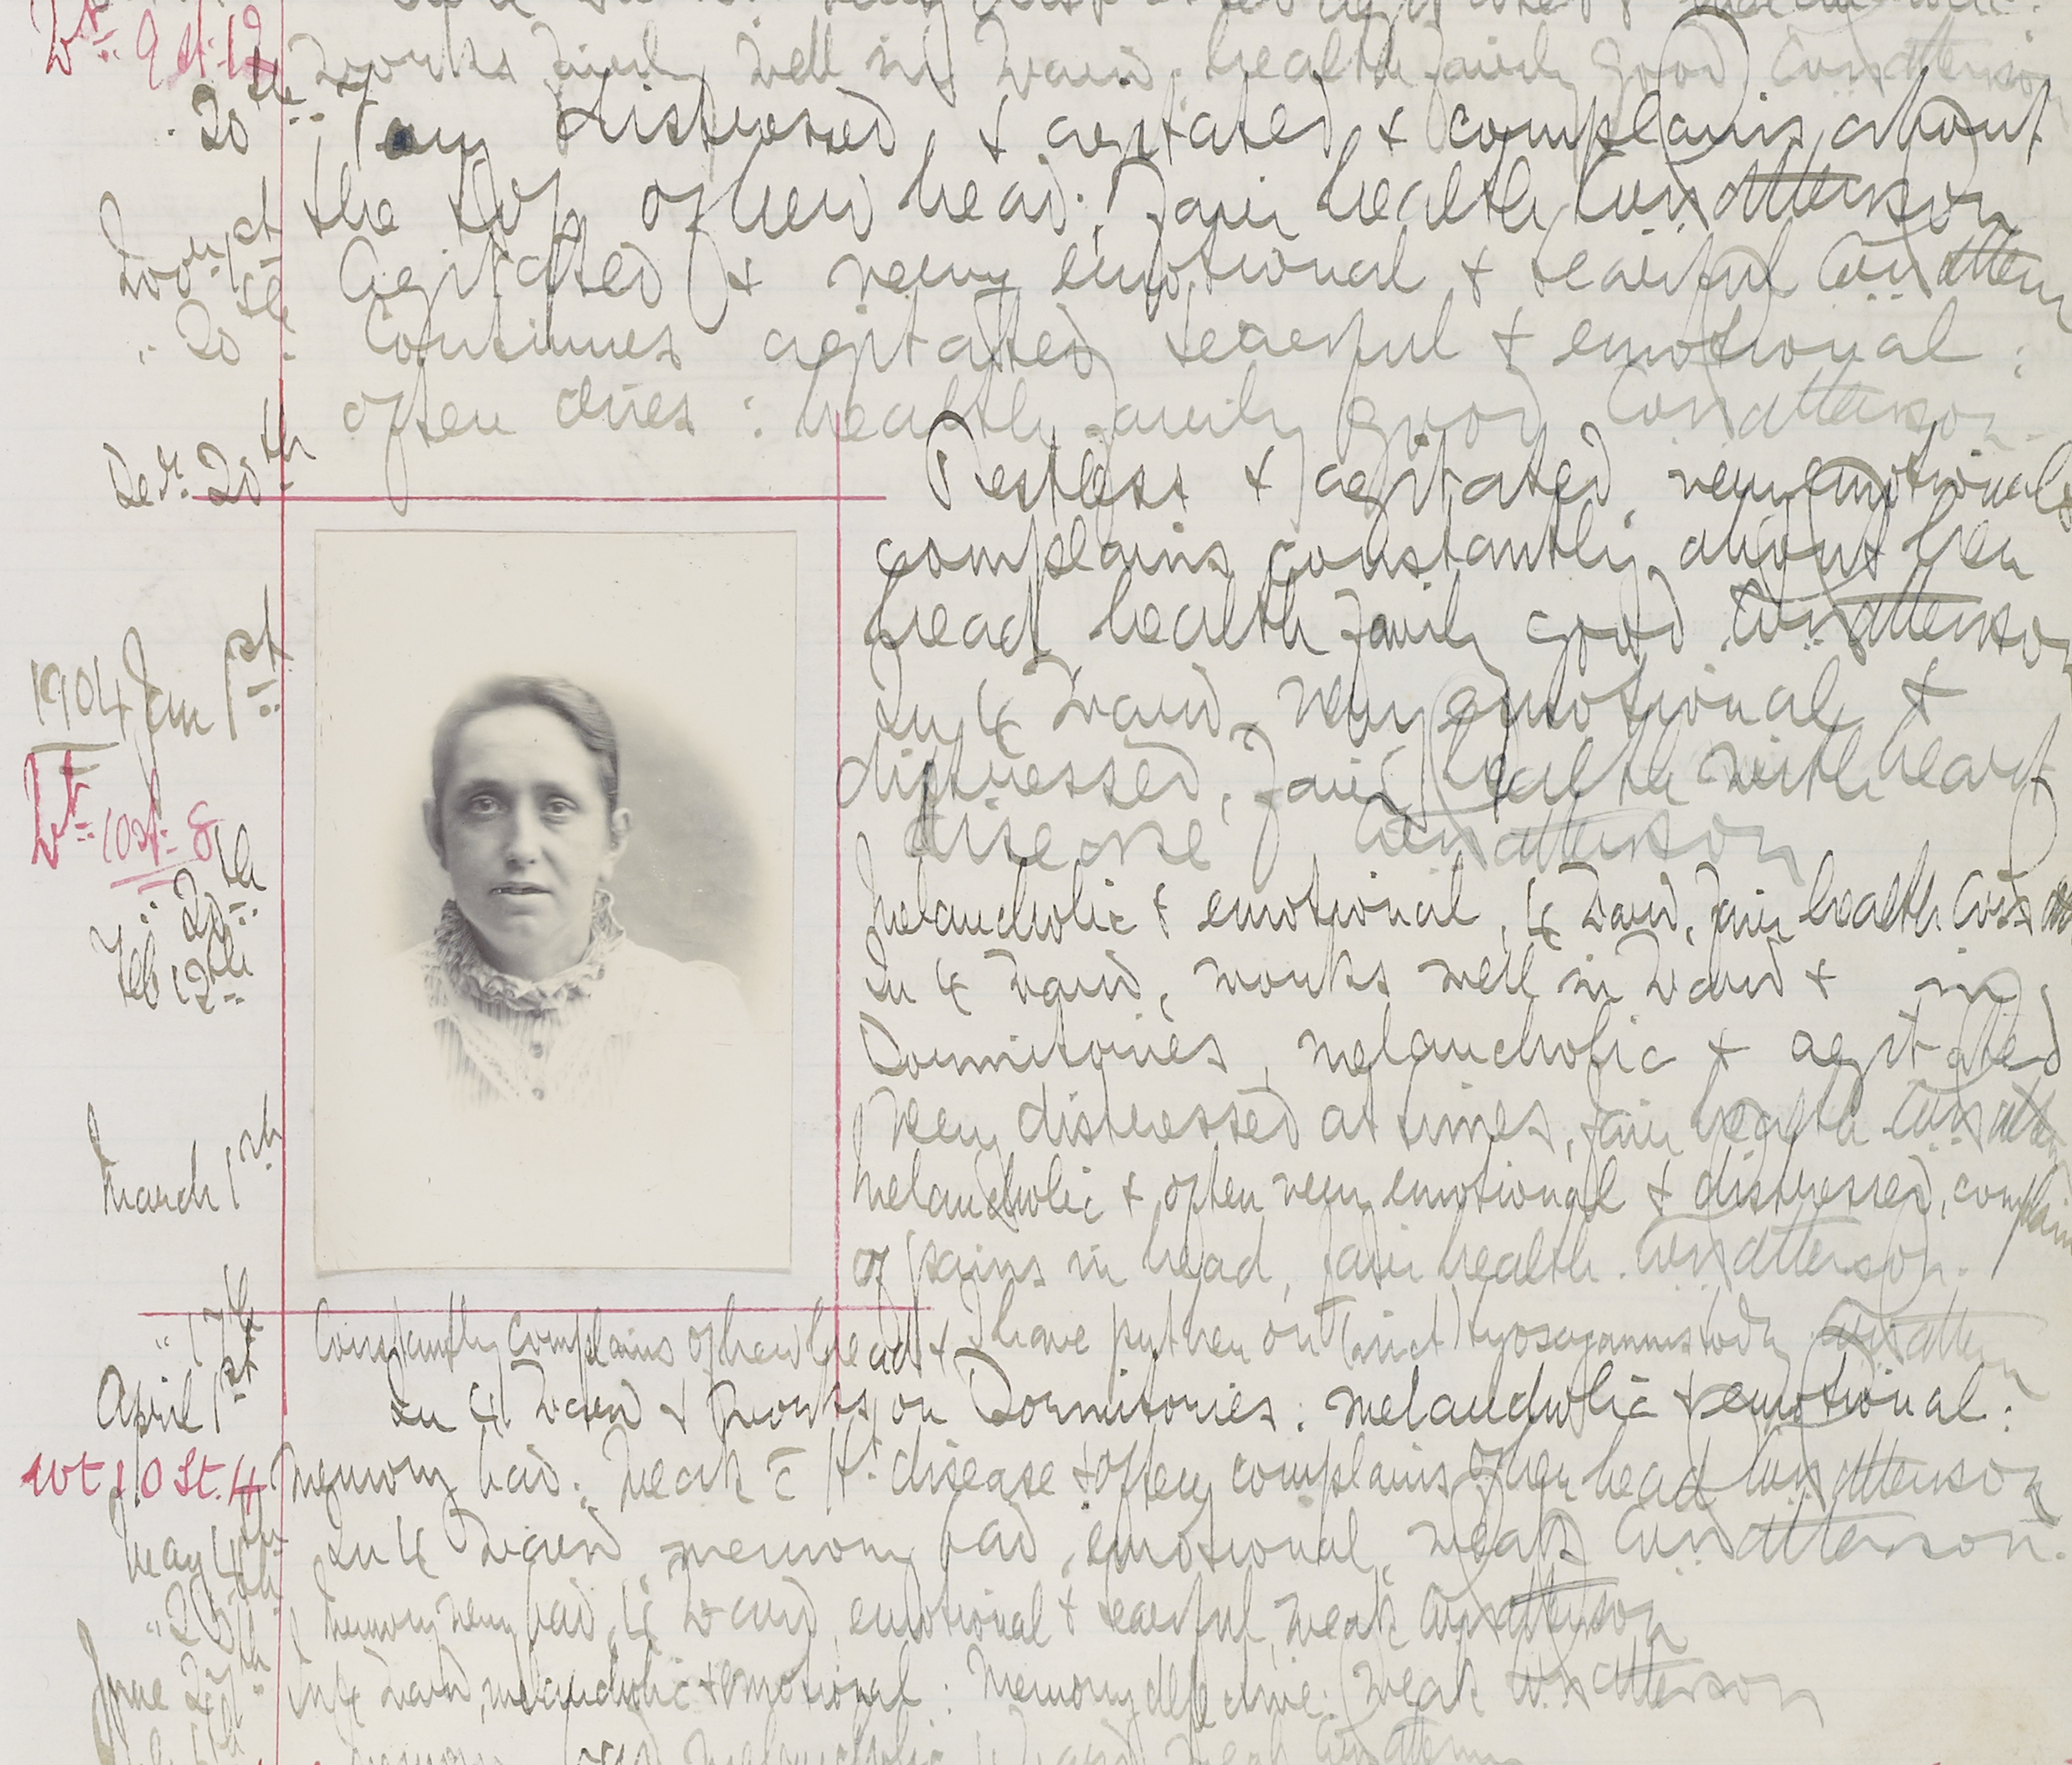 Wt. 9 st. 12
works fairly well in Ward. health fairly good
20th Very distressed & agitated & complains about
the top of her head. Fair health
Novr. 1st Agitated & very emotional & tearful
" 20th Continues agitated tearful & emotional :
often cries : health fairly good
Decr. 20th Restless & agitated, very emotional
complains constantly about her
head health fairly good
1904 Jan 1st In 4 Ward, very emotional &
distressed, Fair health with heart
Wt. 10 st. 8 disease
" 20th Melancholic & emotional, 4 Ward, fair health
Feb 12th In 4 Ward, works well in Ward & in
Dormitories, melancholic & agitated
very distressed at times, fair health
March 1st Melancholic & often very emotional & distressed, complains
of pains in head, fair health.
" 17th Constantly complains of her head & I have put her on Tinct
April 1st In 4 Ward & works on Dormitories : melancholic & emotional :
Wt 10 St. 4 Memory bad : Weak c̄ Ht. disease & often complains of her head
May 4th In 4 Ward, memory bad, emotional, weak
" 20th Memory very bad, 4 Ward, emotional & tearful, weak
June In 4 Ward, melancholic & emotional : Memory defective : Weak
Melancholic Ward weak